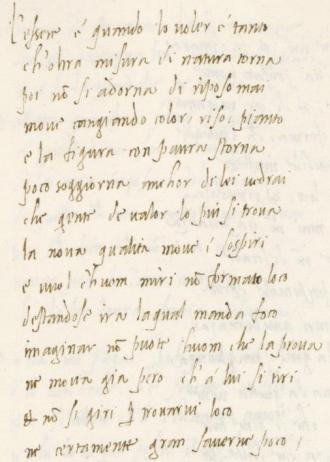 L'essere è quando lo voler è tanto
ch'oltra misura di natura torna
poi nō si adorna di riposo mai
move cangiando color, riso, pianto
e la figura con paura storna
poco soggiorna anchor de lei vedrai
che gēte de valor lo piu si trova
la nova qualità move i sospiri
e vuol c'huom miri nō formato loco
destandose ira la qual manda foco
imaginar nō puote huom che la prova
ne mova gia pero ch'a lui si tiri
et nō si giri ꝑ trovarvi loco
ne certamente gran saverne poco;